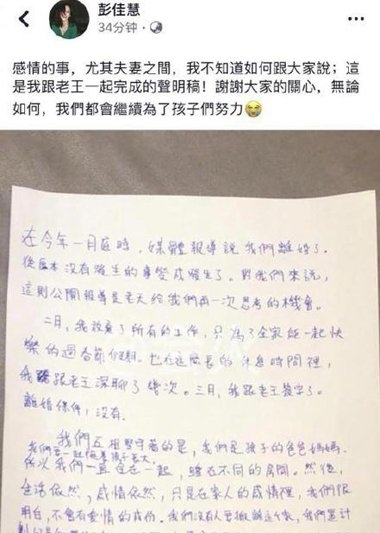 彭佳慧
34分钟
感情的事，尤其夫妻之間，我不知道如何跟大家說；這
是我跟老王一起完成的聲明稿！謝謝大家的關心，無論
如何，我們都會繼續為了孩子們努力😭
在今年一月底時，媒體報導說我們離婚了。
從原本沒有發生的事變成發生了。對我們來說，
這則公開報導是老天給我們再一次思考的機會。
二月，我放棄了所有的工作，只為了全家能一起快
樂的過春節假期。也在這麼長的休息時間裡，
我跟老王深聊了幾次。三月，我跟老王簽字了。
離婚條件，沒有。
我們互相堅守著的是，我們是孩子的爸爸媽媽。
我們要一起陪著孩子長大
所以我們一直住在一起，睡在不同的房間。然後，
生活依然，感情依然，只是在家人的感情裡，我們很
明白，不會有愛情的成份。我們沒有人要搬離這個家，我們是計